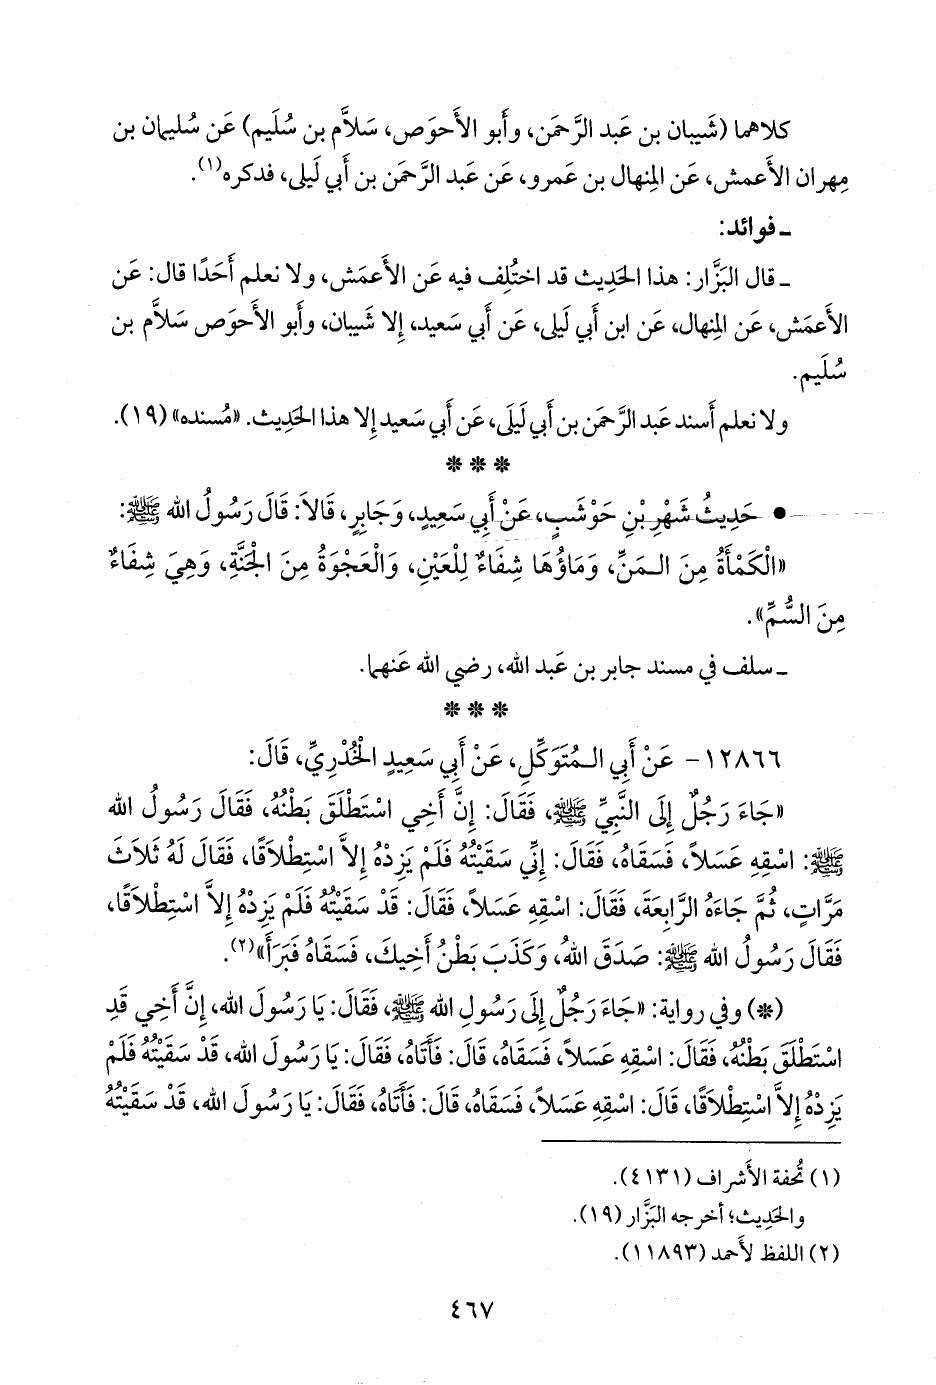 كلاهما (شَيبان بن عَبد الرَّحمَن، وأَبو الأَحوَص، سَلاَّم بن سُلَيم) عَن سُليمان بن
مِهران الأَعمش، عَن المِنهال بن عَمرو، عَن عَبد الرَّحمَن بن أَبي لَيلى، فذكره(١).
ـ فوائد:
ـ قال البَزَّار: هذا الحَديث قد اختُلِف فيه عَن الأَعمَش، ولا نعلم أَحَدًا قال: عَن
الأَعمَش، عَن المِنهال، عَن ابن أَبي لَيلى، عَن أَبي سَعيد، إِلا شَيبان، وأَبو الأَحوَص سَلاَّم بن
سُلَيم.
ولا نعلم أَسند عَبد الرَّحمَن بن أَبي لَيلَى، عَن أَبي سَعيد إِلا هذا الحَديث. «مُسنده» (١٩).
❊ ❊ ❊
● حَدِيثُ شَهْرِ بْنِ حَوْشَبٍ، عَنْ أَبِي سَعِيدٍ، وَجَابِرٍ، قَالاَ: قَالَ رَسُولُ الله ﷺ:
«الْكَمْأَةُ مِنَ الـمَنِّ، وَمَاؤُهَا شِفَاءٌ لِلْعَيْنِ، وَالْعَجْوَةُ مِنَ الْجَنَّةِ، وَهِيَ شِفَاءٌ
مِنَ السُّمِّ».
ـ سلف في مسند جابر بن عَبد الله، رضي الله عَنهما.
❊ ❊ ❊
١٢٨٦٦- عَنْ أَبِي الـمُتَوَكِّلِ، عَنْ أَبِي سَعِيدٍ الْخُدْرِيِّ، قَالَ:
«جَاءَ رَجُلٌ إِلَى النَّبِيِّ ﷺ، فَقَالَ: إِنَّ أَخِي اسْتَطْلَقَ بَطْنُهُ، فَقَالَ رَسُولُ الله
ﷺ: اسْقِهِ عَسَلاً، فَسَقَاهُ، فَقَالَ: إِنِّي سَقَيْتُهُ فَلَمْ يَزِدْهُ إِلاَّ اسْتِطْلاَقًا، فَقَالَ لَهُ ثَلاَثَ
مَرَّاتٍ، ثُمَّ جَاءَهُ الرَّابِعَةَ، فَقَالَ: اسْقِهِ عَسَلاً، فَقَالَ: قَدْ سَقَيْتُهُ فَلَمْ يَزِدْهُ إِلاَّ اسْتِطْلاَقًا،
فَقَالَ رَسُولُ الله ﷺ: صَدَقَ اللهُ، وَكَذَبَ بَطْنُ أَخِيكَ، فَسَقَاهُ فَبَرَأَ»(٢).
(❊) وفي رواية: «جَاءَ رَجُلٌ إِلَى رَسُولِ الله ﷺ، فَقَالَ: يَا رَسُولَ الله، إِنَّ أَخِي قَدِ
اسْتَطْلَقَ بَطْنُهُ، فَقَالَ: اسْقِهِ عَسَلاً، فَسَقَاهُ، قَالَ: فَأَتَاهُ، فَقَالَ: يَا رَسُولَ الله، قَدْ سَقَيْتُهُ فَلَمْ
يَزِدْهُ إِلاَّ اسْتِطْلاَقًا، قَالَ: اسْقِهِ عَسَلاً، فَسَقَاهُ، قَالَ: فَأَتَاهُ، فَقَالَ: يَا رَسُولَ الله، قَدْ سَقَيْتُهُ
(١) تُحفة الأَشراف (٤١٣١).
والحَديث؛ أَخرجه البَزَّار (١٩).
(٢) اللفظ لأَحمد (١١٨٩٣).
٤٦٧